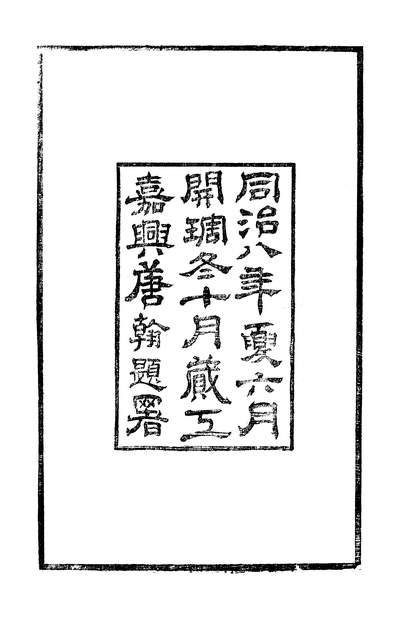 同治八年夏六月
開琱冬十月蕆工
嘉興唐翰題署